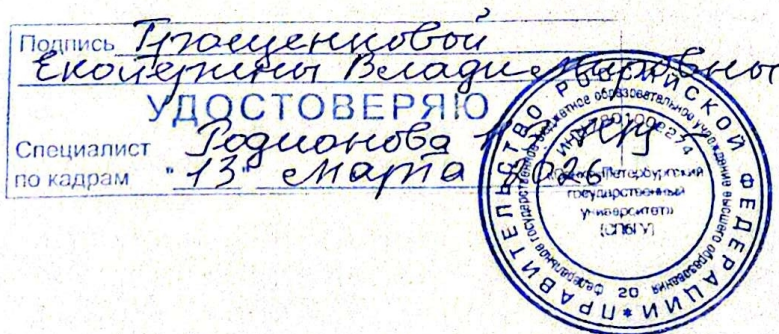 Подпись Грощенковой
Екатерины Владимировны
УДОСТОВЕРЯЮ
Специалист Родионова
по кадрам "13" марта 2026
ПРАВИТЕЛЬСТВО РОССИЙСКОЙ ФЕДЕРАЦИИ *
Федеральное государственное бюджетное образовательное учреждение высшего образования
«Санкт-Петербургский
государственный
университет»
(СПбГУ)
20